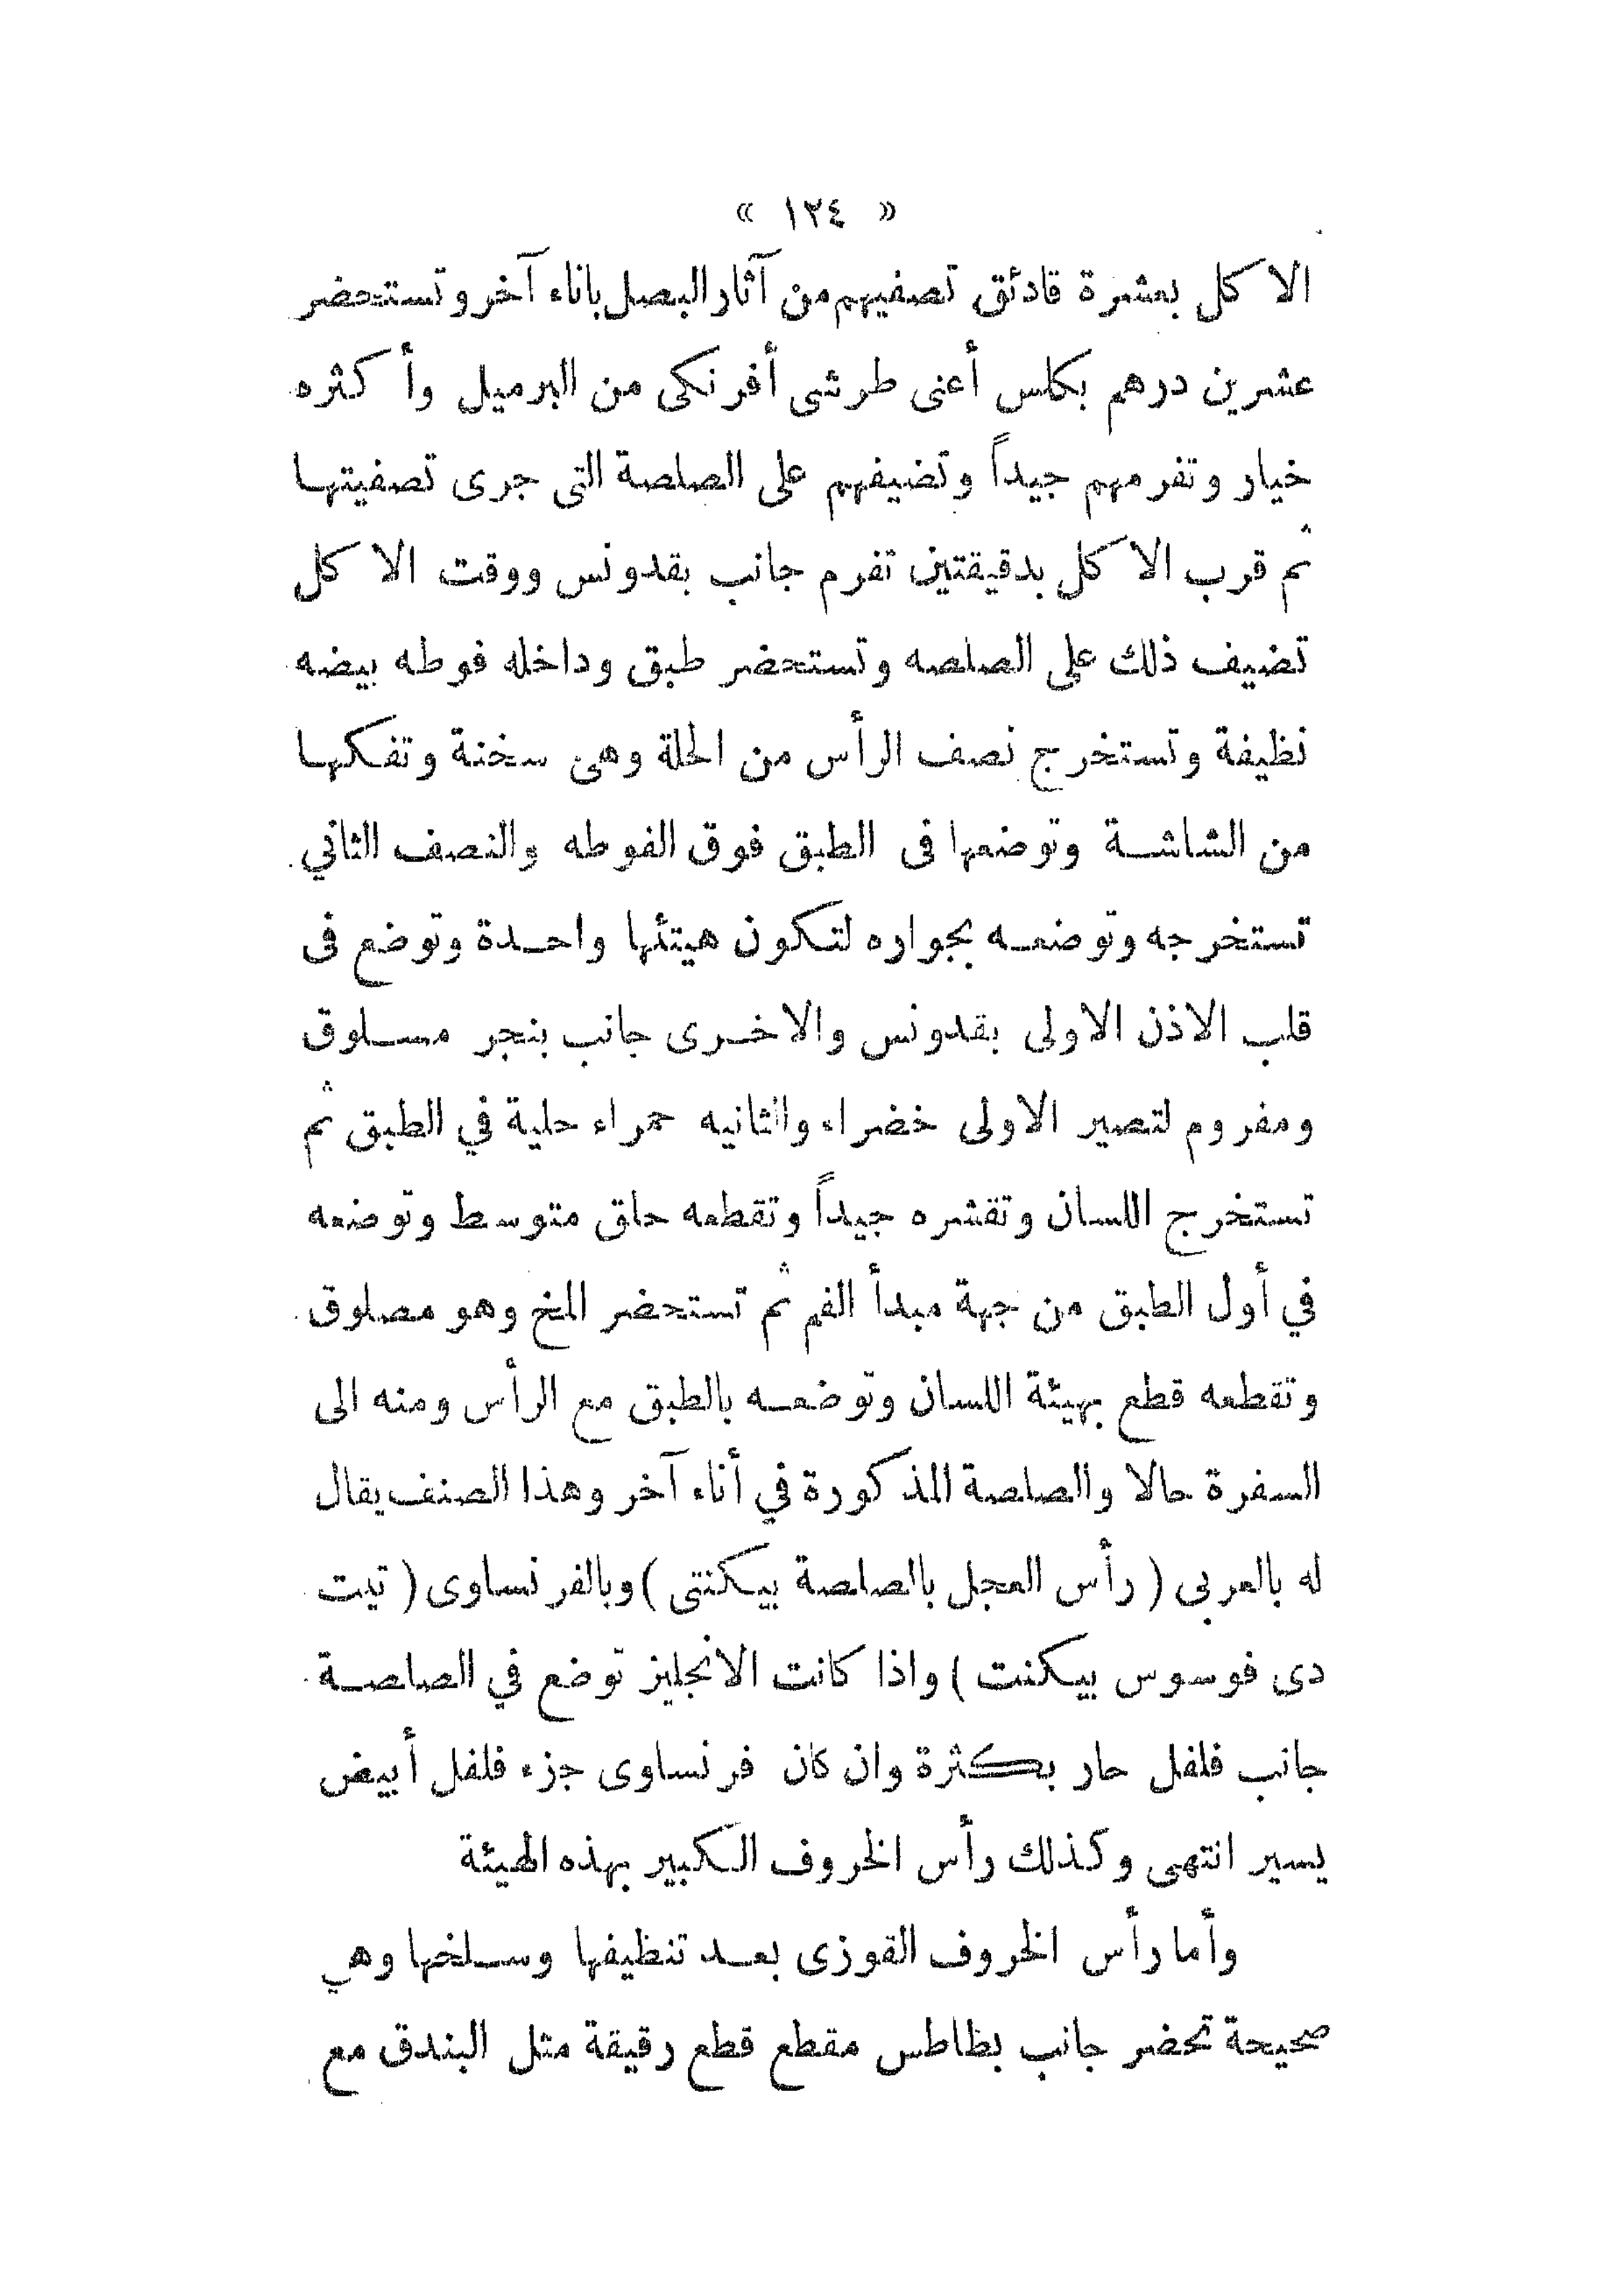 « ١٢٤ »
الاكل بعشرة قادئق تصفيهم من آثار البصل باناء آخر وتستحضر
عشرين درهم بكلس أعنى طرشى أفرنكى من البرميل وأكثره
خيار وتفرمهم جيداً وتضيفهم على الصلصة التى جرى تصفيتها
ثم قرب الاكل بدقيقتين تفرم جانب بقدونس ووقت الاكل
تضيف ذلك على الصلصه وتستحضر طبق وداخله فوطه بيضه
نظيفة وتستخرج نصف الرأس من الحلة وهى سخنة وتفكها
من الشاشة وتوضعها فى الطبق فوق الفوطه والنصف الثاني
تستخرجه وتوضعه بجواره لتكون هيئتها واحدة وتوضع فى
قلب الاذن الاولى بقدونس والاخرى جانب بنجر مسلوق
ومفروم لتصير الاولى خضراء والثانيه حمراء حلية في الطبق ثم
تستخرج اللسان وتقشره جيداً وتقطعه حلق متوسط وتوضعه
في أول الطبق من جهة مبدأ الفم ثم تستحضر المخ وهو مصلوق
وتقطعه قطع بهيئة اللسان وتوضعه بالطبق مع الرأس ومنه الى
السفرة حالا والصلصة المذكورة في أناء آخر وهذا الصنف يقال
له بالعربى ( رأس العجل بالصلصة بيكنتى ) وبالفرنساوى ( تيت
دى فوسوس بيكنت ) واذا كانت الانجليز توضع في الصلصة
جانب فلفل حار بكثرة وان كان فرنساوى جزء فلفل أبيض
يسير انتهى وكذلك رأس الخروف الكبير بهذه الهيئة
وأما رأس الخروف القوزى بعد تنظيفها وسلخها وهي
صحيحة تحضر جانب بطاطس مقطع قطع رقيقة مثل البندق مع